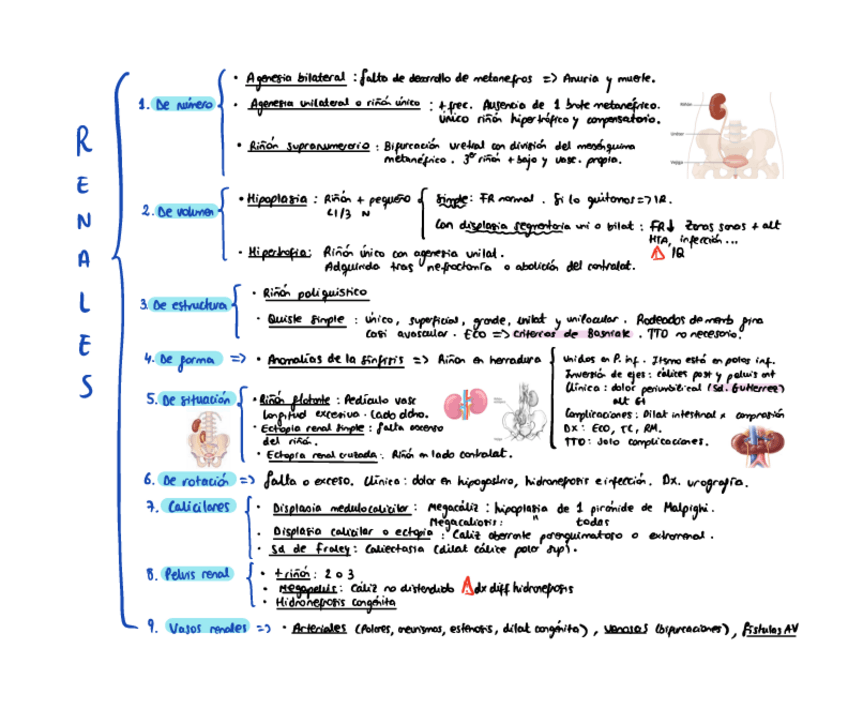 RENALES
1. De número
• Agenesia bilateral : falta de desarrollo de metanefros => Anuria y muerte.
• Agenesia unilateral o riñón único : + frec. Ausencia de 1 brote metanéfrico.
único riñón hipertrófico y compensatorio.
• Riñón supranumerario : Bifurcación uretral con división del mesénquima
metanéfrico. 3er riñón + bajo y vasc. propia.
2. De volumen
• Hipoplasia : Riñón + pequeño
<1/3 N
Simple: FR normal. Si lo quitamos => IR.
Con displasia segmentaria uni o bilat : FR↓ Zonas sanas + alt
HTA, infección...
IQ
• Hipertrofia: Riñón único con agenesia unilat.
Adquirida tras nefrectomía o abolición del contralat.
3. De estructura
• Riñón poliquístico
• Quiste simple : único, superficial, grande, unilat y unilocular. Rodeados de memb fina
casi avascular. ECO => criterios de Bosniak. TTO no necesario.
4. De forma => • Anomalías de la sínfisis => Riñón en herradura
unidos en P. inf. Itsmo está en polos inf.
Inversión de ejes : cálices post y pelvis ant
Clínica : dolor periumbilical (Sd. Gutierrez)
alt GI
Complicaciones : Dilat intestinal x compresión
DX : ECO, TC, RM.
TTO : Solo complicaciones.
5. De situación
• Riñón flotante : Pedículo vasc
longitud excesiva. Lado dcho.
• Ectopia renal simple : falta ascenso
del riñón.
• Ectopia renal cruzada : Riñón en lado contralat.
6. De rotación => falta o exceso. Clínica : dolor en hipogastrio, hidronefrosis e infección. Dx. urografía.
7. Calicilares
• Displasia medulocalicilar : Megacáliz : hipoplasia de 1 pirámide de Malpighi.
Megacaliosis : " todas
• Displasia calicilar o ectopia : Cáliz aberrante parenquimatoso o extrarrenal.
• Sd de Fraley : Caliectasia (dilat cálice polar sup).
8. Pelvis renal
• + riñón : 2 o 3
• Megapelvis : Cáliz no distendido dx diff hidronefrosis
• Hidronefrosis congénita
9. Vasos renales => • Arteriales (Polares, aneurismas, estenosis, dilat congénita), venosas (bifurcaciones), Fístulas AV